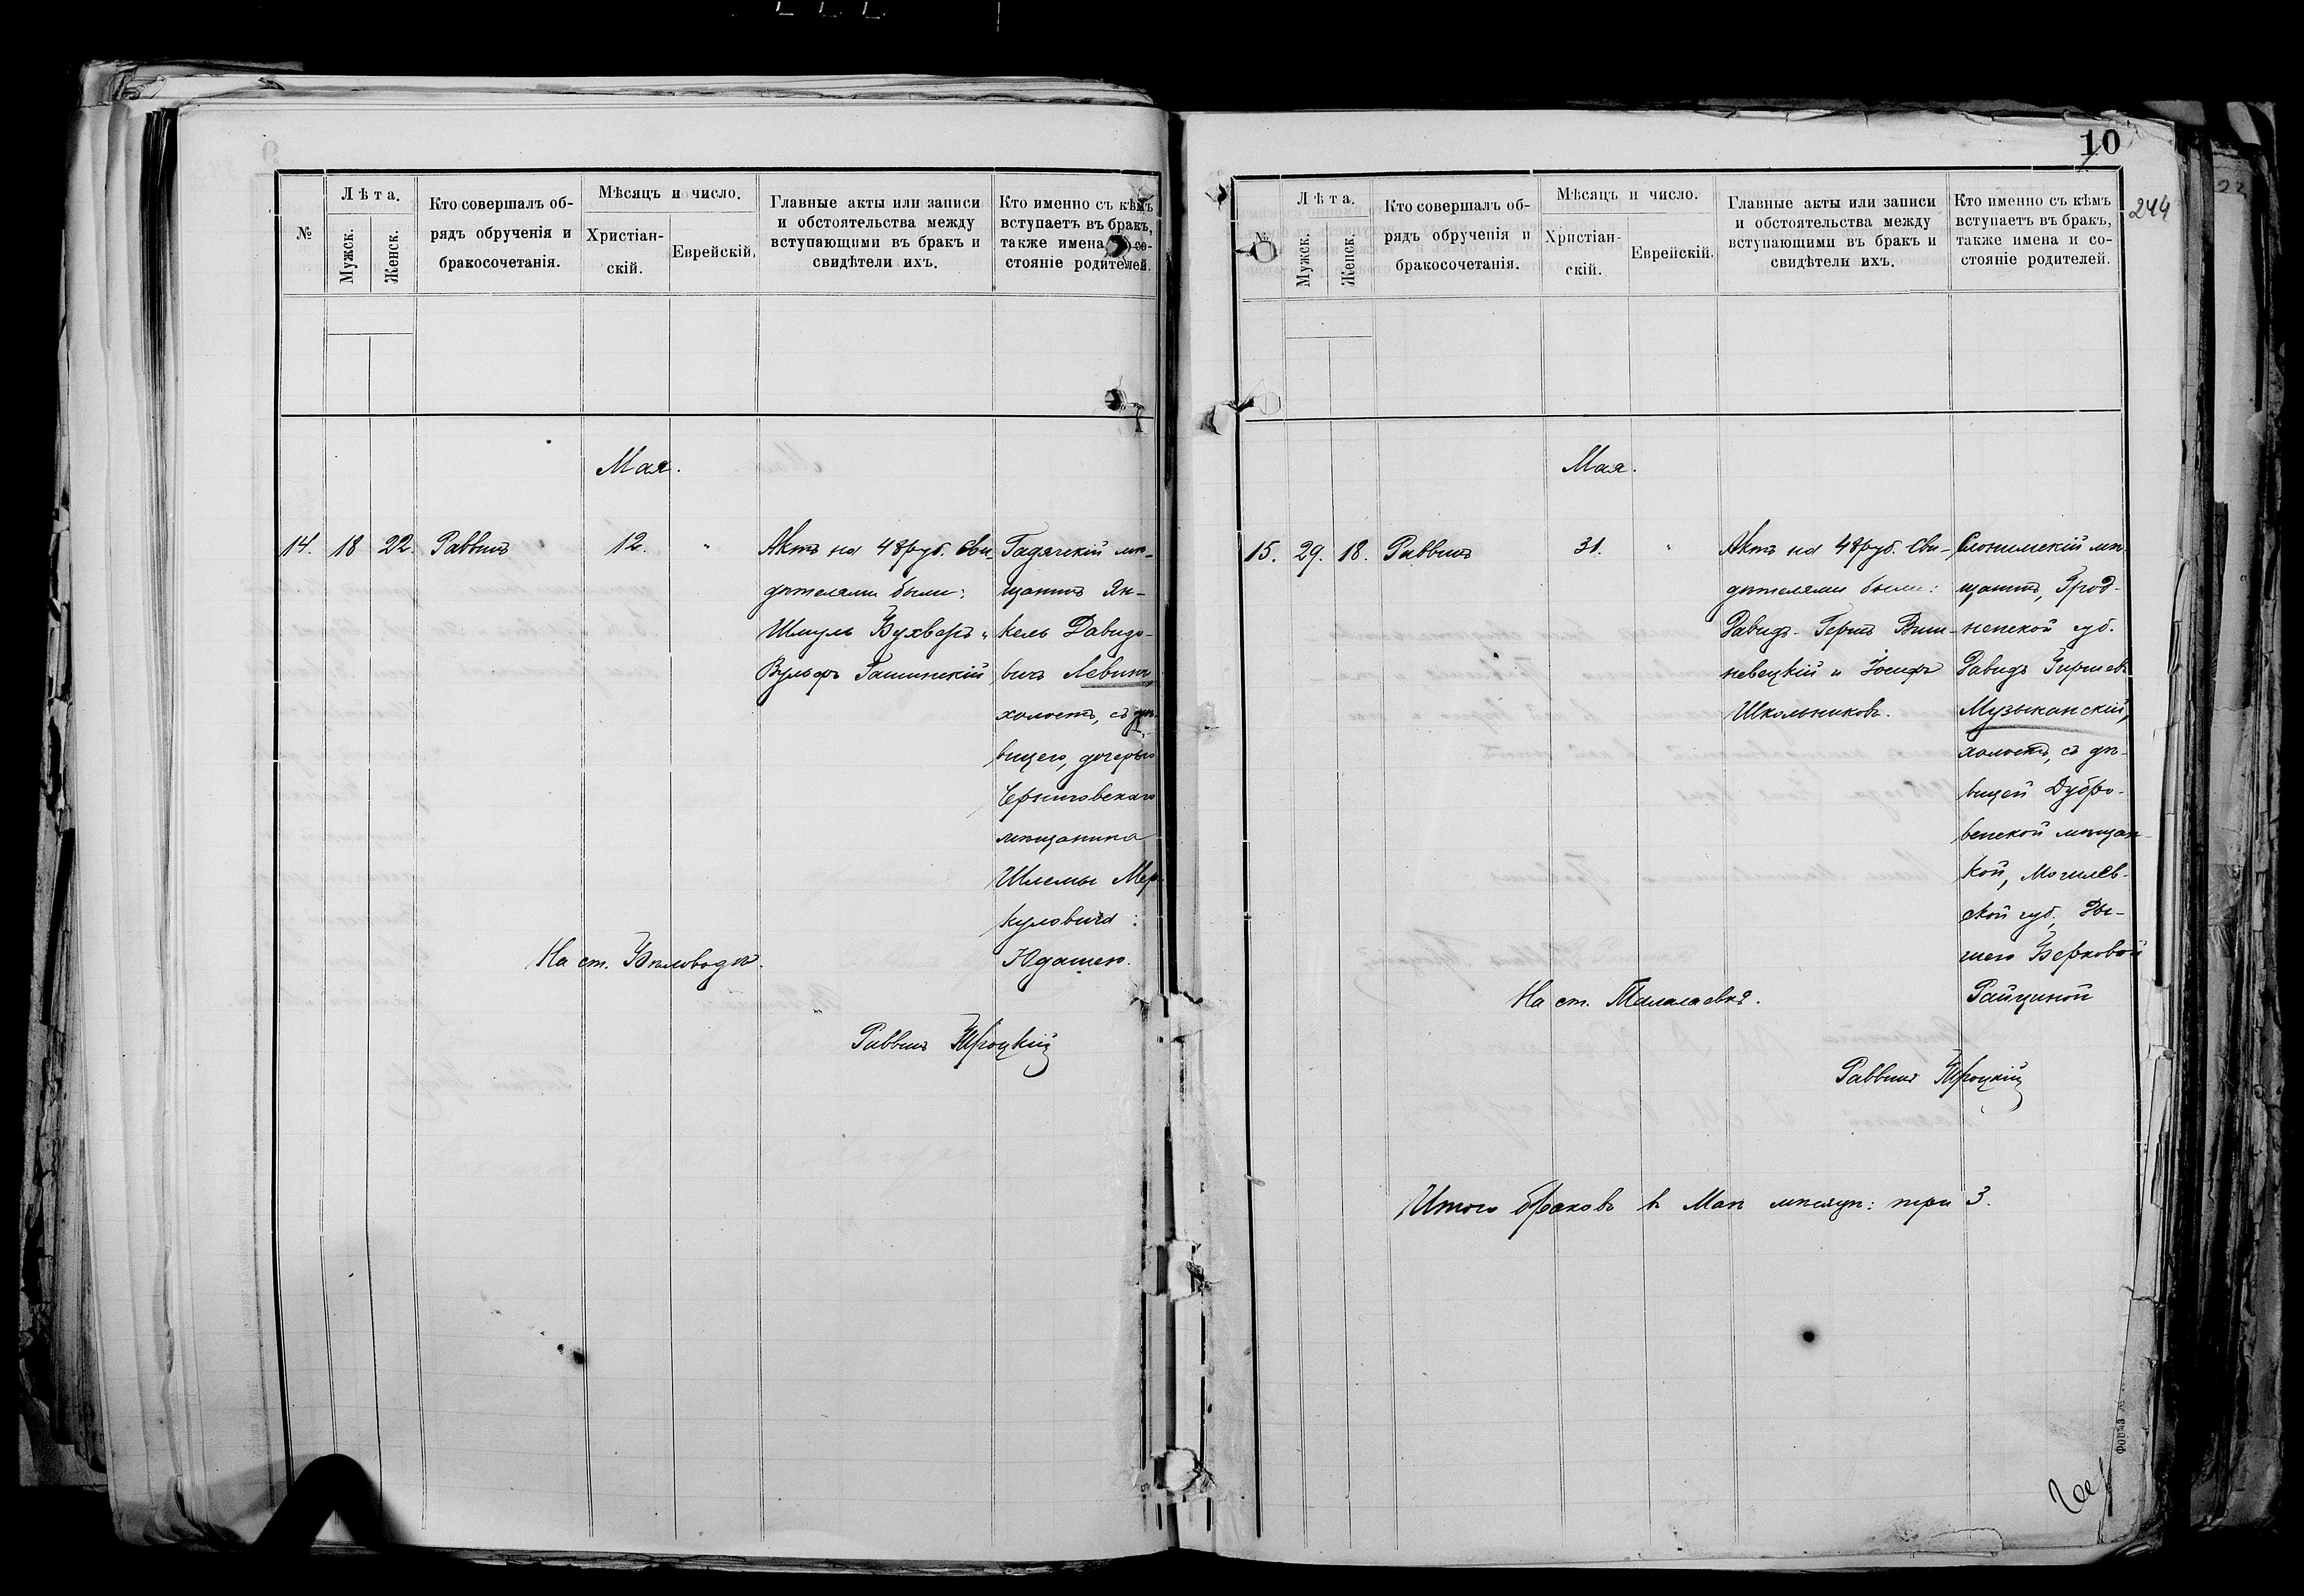 №
Лѣта.
Мужск.
Женск.
Кто совершалъ об-
рядъ обрученія и
бракосочетанія.
Мѣсяцъ и число.
Христіан-
скій.
Еврейскій.
Главные акты или записи
и обстоятельства между
вступающими въ бракъ и
свидѣтели ихъ.
Кто именно съ кѣмъ
вступаетъ въ бракъ,
также имена и со-
стояніе родителей.
Мая.
14. 18 22. Раввинъ 12. "
Актъ на 48 руб. Сви-
дѣтелями были:
Шмуль Бухверъ и
Вульфъ Гашинскій
Гадячскій мѣ-
щанинъ Ян-
кель Давидо-
вичъ Левинъ,
холостъ, съ дѣ-
вицею, дочерью
Черниговскаго
мѣщанина
Шлемы Мер-
куловича:
Юдашею.
На ст. Бѣловоды.
Раввинъ Троцкій
10
244
№
Лѣта.
Мужск.
Женск.
Кто совершалъ об-
рядъ обрученія и
бракосочетанія.
Мѣсяцъ и число.
Христіан-
скій.
Еврейскій.
Главные акты или записи
и обстоятельства между
вступающими въ бракъ и
свидѣтели ихъ.
Кто именно съ кѣмъ
вступаетъ въ бракъ,
также имена и со-
стояніе родителей.
Мая.
15. 29. 18. Раввинъ 31. "
Актъ на 48 руб. Сви-
дѣтелями были:
Давидъ-Герцъ Виш-
невецкій и Іосифъ
Школьниковъ.
Слонимскій мѣ-
щанинъ, Грод-
ненской губ.
Давидъ Гиршевъ
Музыканскій,
холостъ, съ дѣ-
вицей Дубро-
венской мѣщан-
кой, Могилёв-
ской губ.
шею Берковой
Райциной
На ст. Талалаевка.
Раввинъ Троцкій
Итого браковъ въ Маѣ мѣсяцѣ: три 3.
Форма